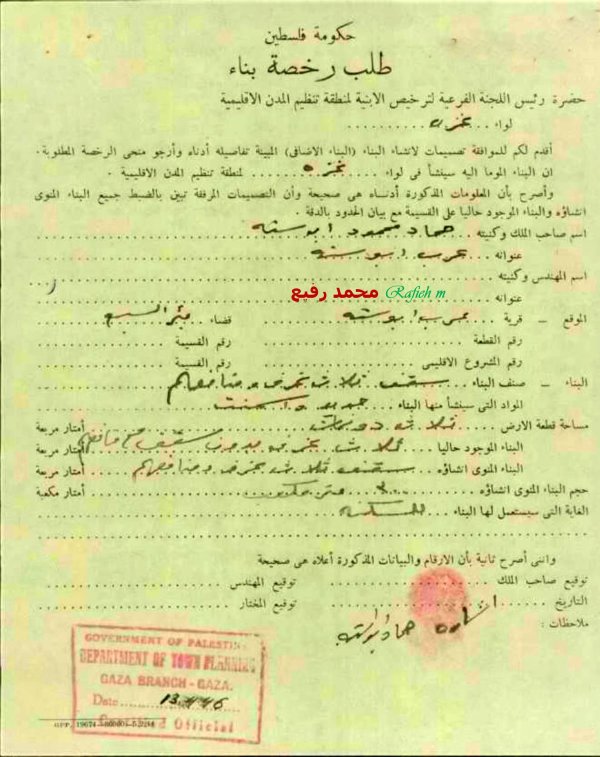 حكومة فلسطين
طلب رخصة بناء
حضرة رئيس اللجنة الفرعية لترخيص الابنية لمنطقة تنظيم المدن الاقليمية
لواء ... غزه
أقدم لكم للموافقة تصميمات لانشاء البناء (البناء الاضافى) المبينة تفاصيله أدناه وأرجو منحى الرخصة المطلوبة .
ان البناء الموما اليه سينشأ في لواء ... غزه ... لمنطقة تنظيم المدن الاقليمية .
وأصرح بأن المعلومات المذكورة أدناه هى صحيحة وأن التصميمات المرفقة تبين بالضبط جميع البناء المنوى
انشاؤه والبناء الموجود حاليا على القسيمة مع بيان الحدود بالدقة .
اسم صاحب الملك وكنيته حماد محمود ابو سته
عنوانه ... عرب ابو سته
اسم المهندس وكنيته
عنوانه محمد رفيع Rafieh m
الموقع – قرية ... عرب ابو سته ... قضاء ... بئر السبع
رقم القطعة ... رقم القسيمة
رقم المشروع الاقليمى ... رقم القسيمة
البناء – صنف البناء ... سقف ثلاث غرف و منافعهم
المواد التى سينشأ منها البناء ... حديد و اسمنت
مساحة قطعة الارض ... ثلاث دونمات ... أمتار مربعة
البناء الموجود حاليا ... ثلاث غرف بدون سقف مع منافعهم أمتار مربعة
البناء المنوى انشاؤه ... سقف ثلاث غرف و منافعهم ... أمتار مربعة
حجم البناء المنوى انشاؤه ... متر مكعب ... أمتار مكعبة
الغاية التى سيستعمل لها البناء ... للسكنه
وانى أصرح ثانية بأن الارقام والبيانات المذكورة أعلاه هى صحيحة
توقيع صاحب الملك ... توقيع المهندس
التاريخ ... توقيع المختار
ملاحظات :
حماد ابو سته
GOVERNMENT OF PALESTINE
DEPARTMENT OF TOWN PLANNING
GAZA BRANCH - GAZA.
Date
Official